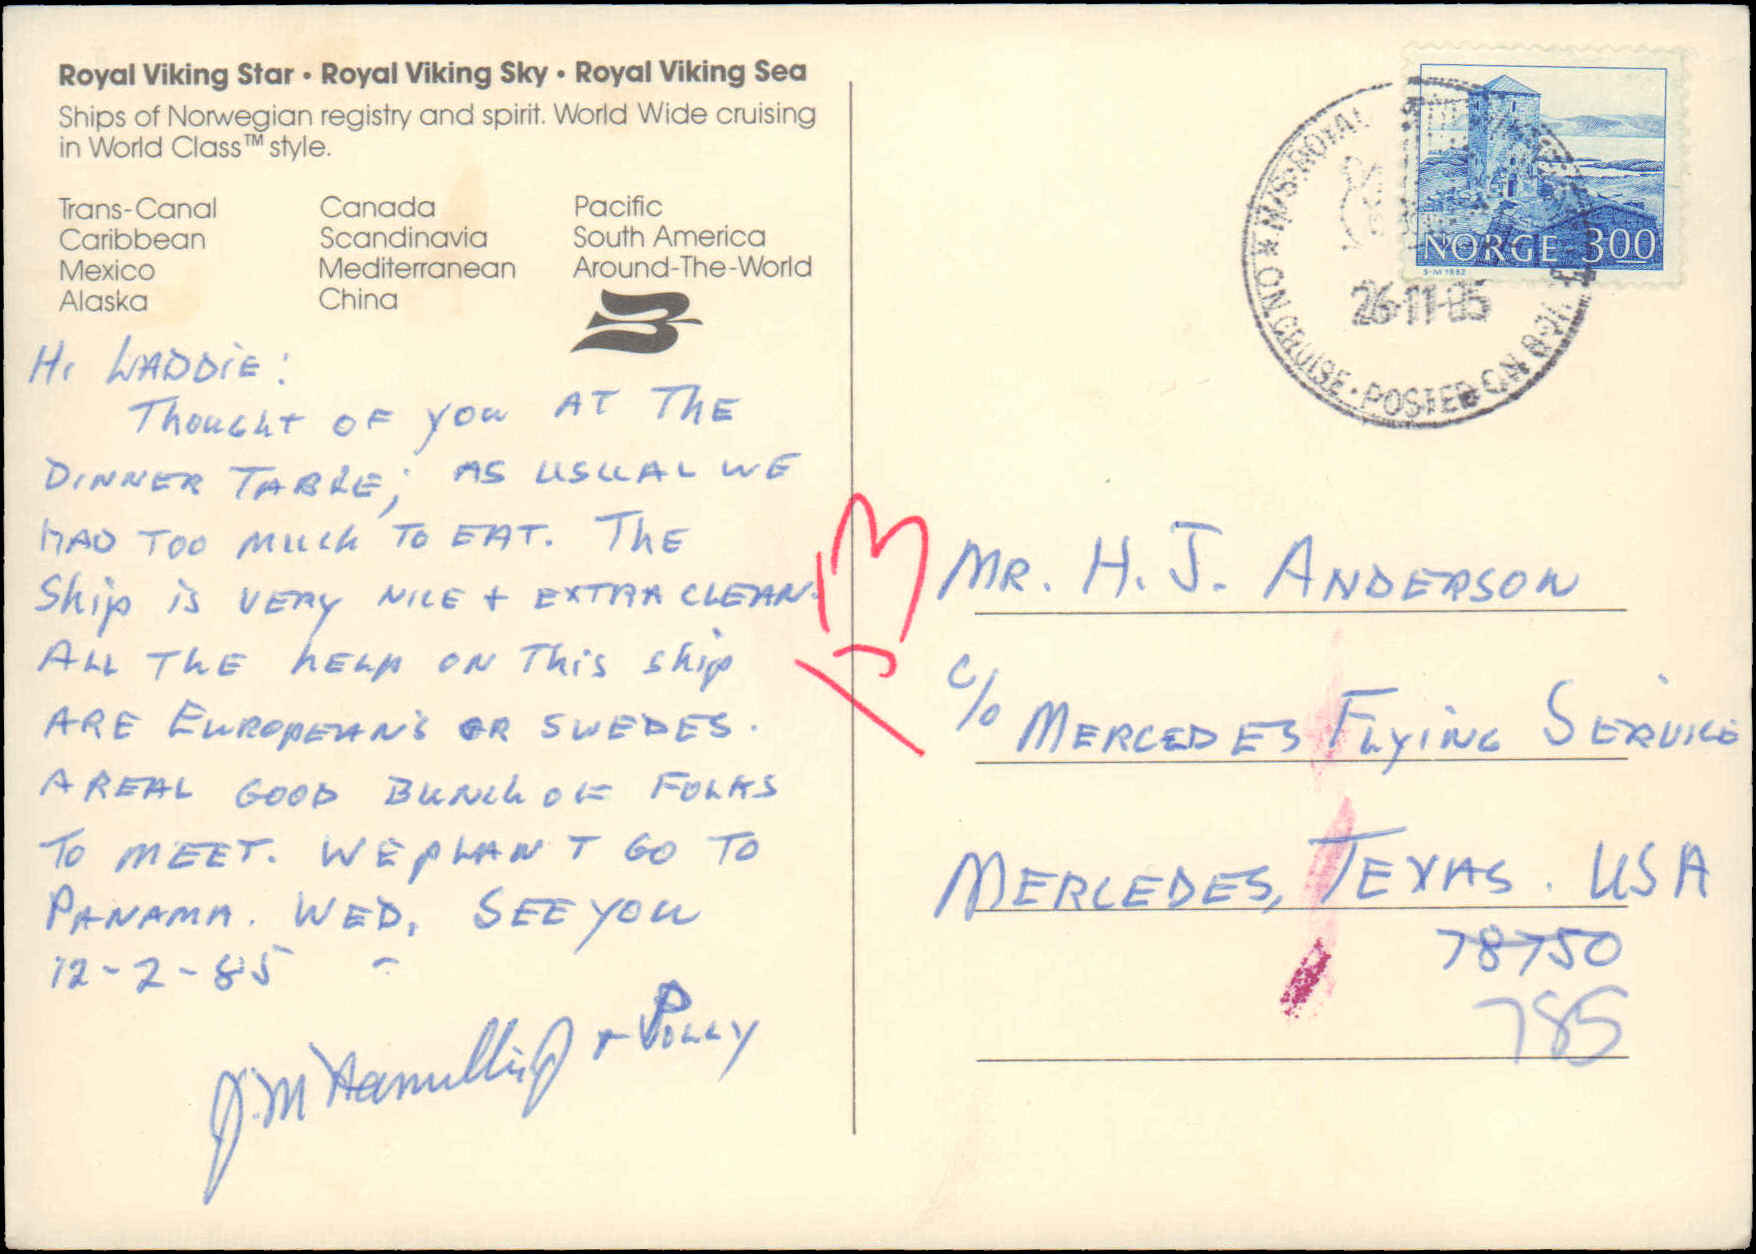 Royal Viking Star • Royal Viking Sky • Royal Viking Sea
Ships of Norwegian registry and spirit. World Wide cruising
in World Class™ style.
Trans-Canal Canada Pacific
Caribbean Scandinavia South America
Mexico Mediterranean Around-The-World
Alaska China
HI LADDIE:
THOUGHT OF YOU AT THE
DINNER TABLE; AS USUAL WE
HAD TOO MUCH TO EAT. THE
SHIP IS VERY NICE + EXTRA CLEAN.
ALL THE HELP ON THIS SHIP
ARE EUROPEAN'S OR SWEDES.
A REAL GOOD BUNCH OF FOLKS
TO MEET. WE PLAN T GO TO
PANAMA. WED. SEE YOU
12-2-85
J.M. + POLLY
NORGE 300
S-M 1982
M/S ROYAL
26-11-85
ON CRUISE · POSTED ON
MR. H. J. ANDERSON
C/O MERCEDES FLYING SERVICE
MERCEDES, TEXAS. USA
78750
785